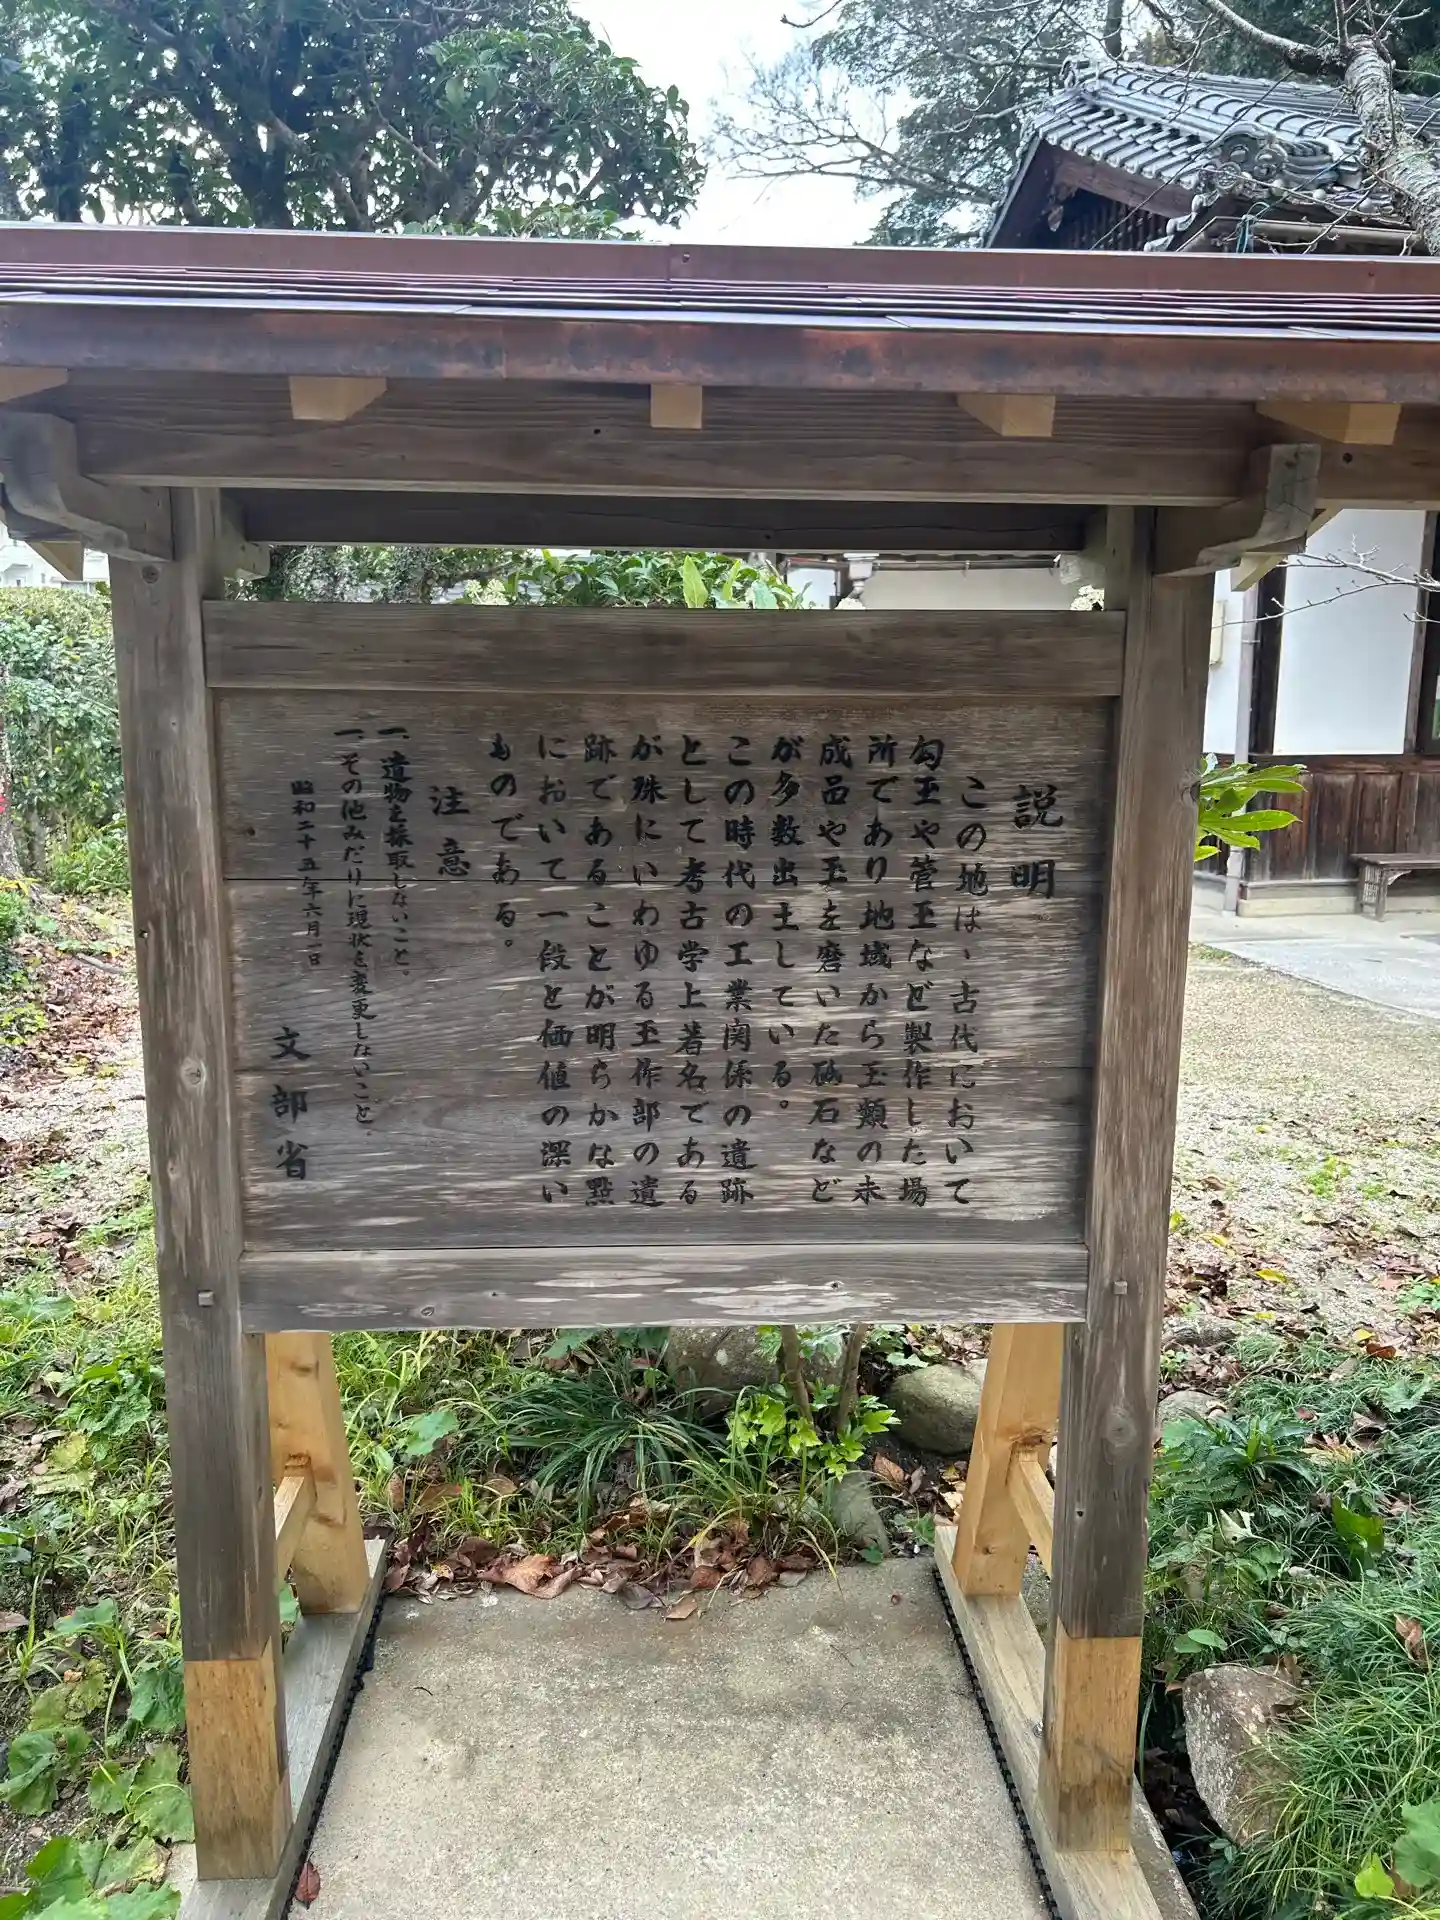 説明
この地は、古代において
勾玉や管玉など製作した場
所であり地域から玉類の未
成品や玉を磨いた砥石など
が多数出土している。
この時代の工業関係の遺跡
として考古学上著名である
が殊にいわゆる玉作部の遺
跡であることが明らかな點
において一段と価値の深い
ものである。
注意
一、遺物を採取しないこと。
一、その他みだりに現状を変更しないこと。
昭和二十五年六月一日
文部省